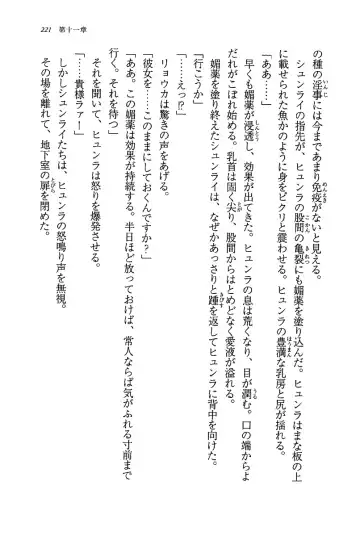 221　第十一章
の種の淫事には今まであまり免疫がないと見える。
　シュンライの指先が、ヒュンラの股間の亀裂にも媚薬を塗り込んだ。ヒュンラはまな板の上
に載せられた魚かのように身をビクリと震わせる。ヒュンラの豊満な乳房と尻が揺れる。
「ああ……」
　早くも媚薬が浸透し、効果が出てきた。ヒュンラの息は荒くなり、目が潤む。口の端からよ
だれがこぼれ始める。乳首は固く尖り、股間からはとめどなく愛液が溢れる。
　媚薬を塗り終えたシュンライは、なぜかあっさりと踵を返してヒュンラに背中を向けた。
「行こうか」
「……えっ!?」
　リョウカは驚きの声をあげる。
「彼女を……このままにしておくんですか？」
「ああ。この媚薬は効果が持続する。半日ほど放っておけば、常人ならば気がふれる寸前まで
行く。それを待つ」
　それを聞いて、ヒュンラは怒りを爆発させる。
「〜〜〜〜〜貴様ラァー！」
　しかしシュンライたちは、ヒュンラの怒鳴り声を無視。
　その場を離れて、地下室の扉を閉めた。